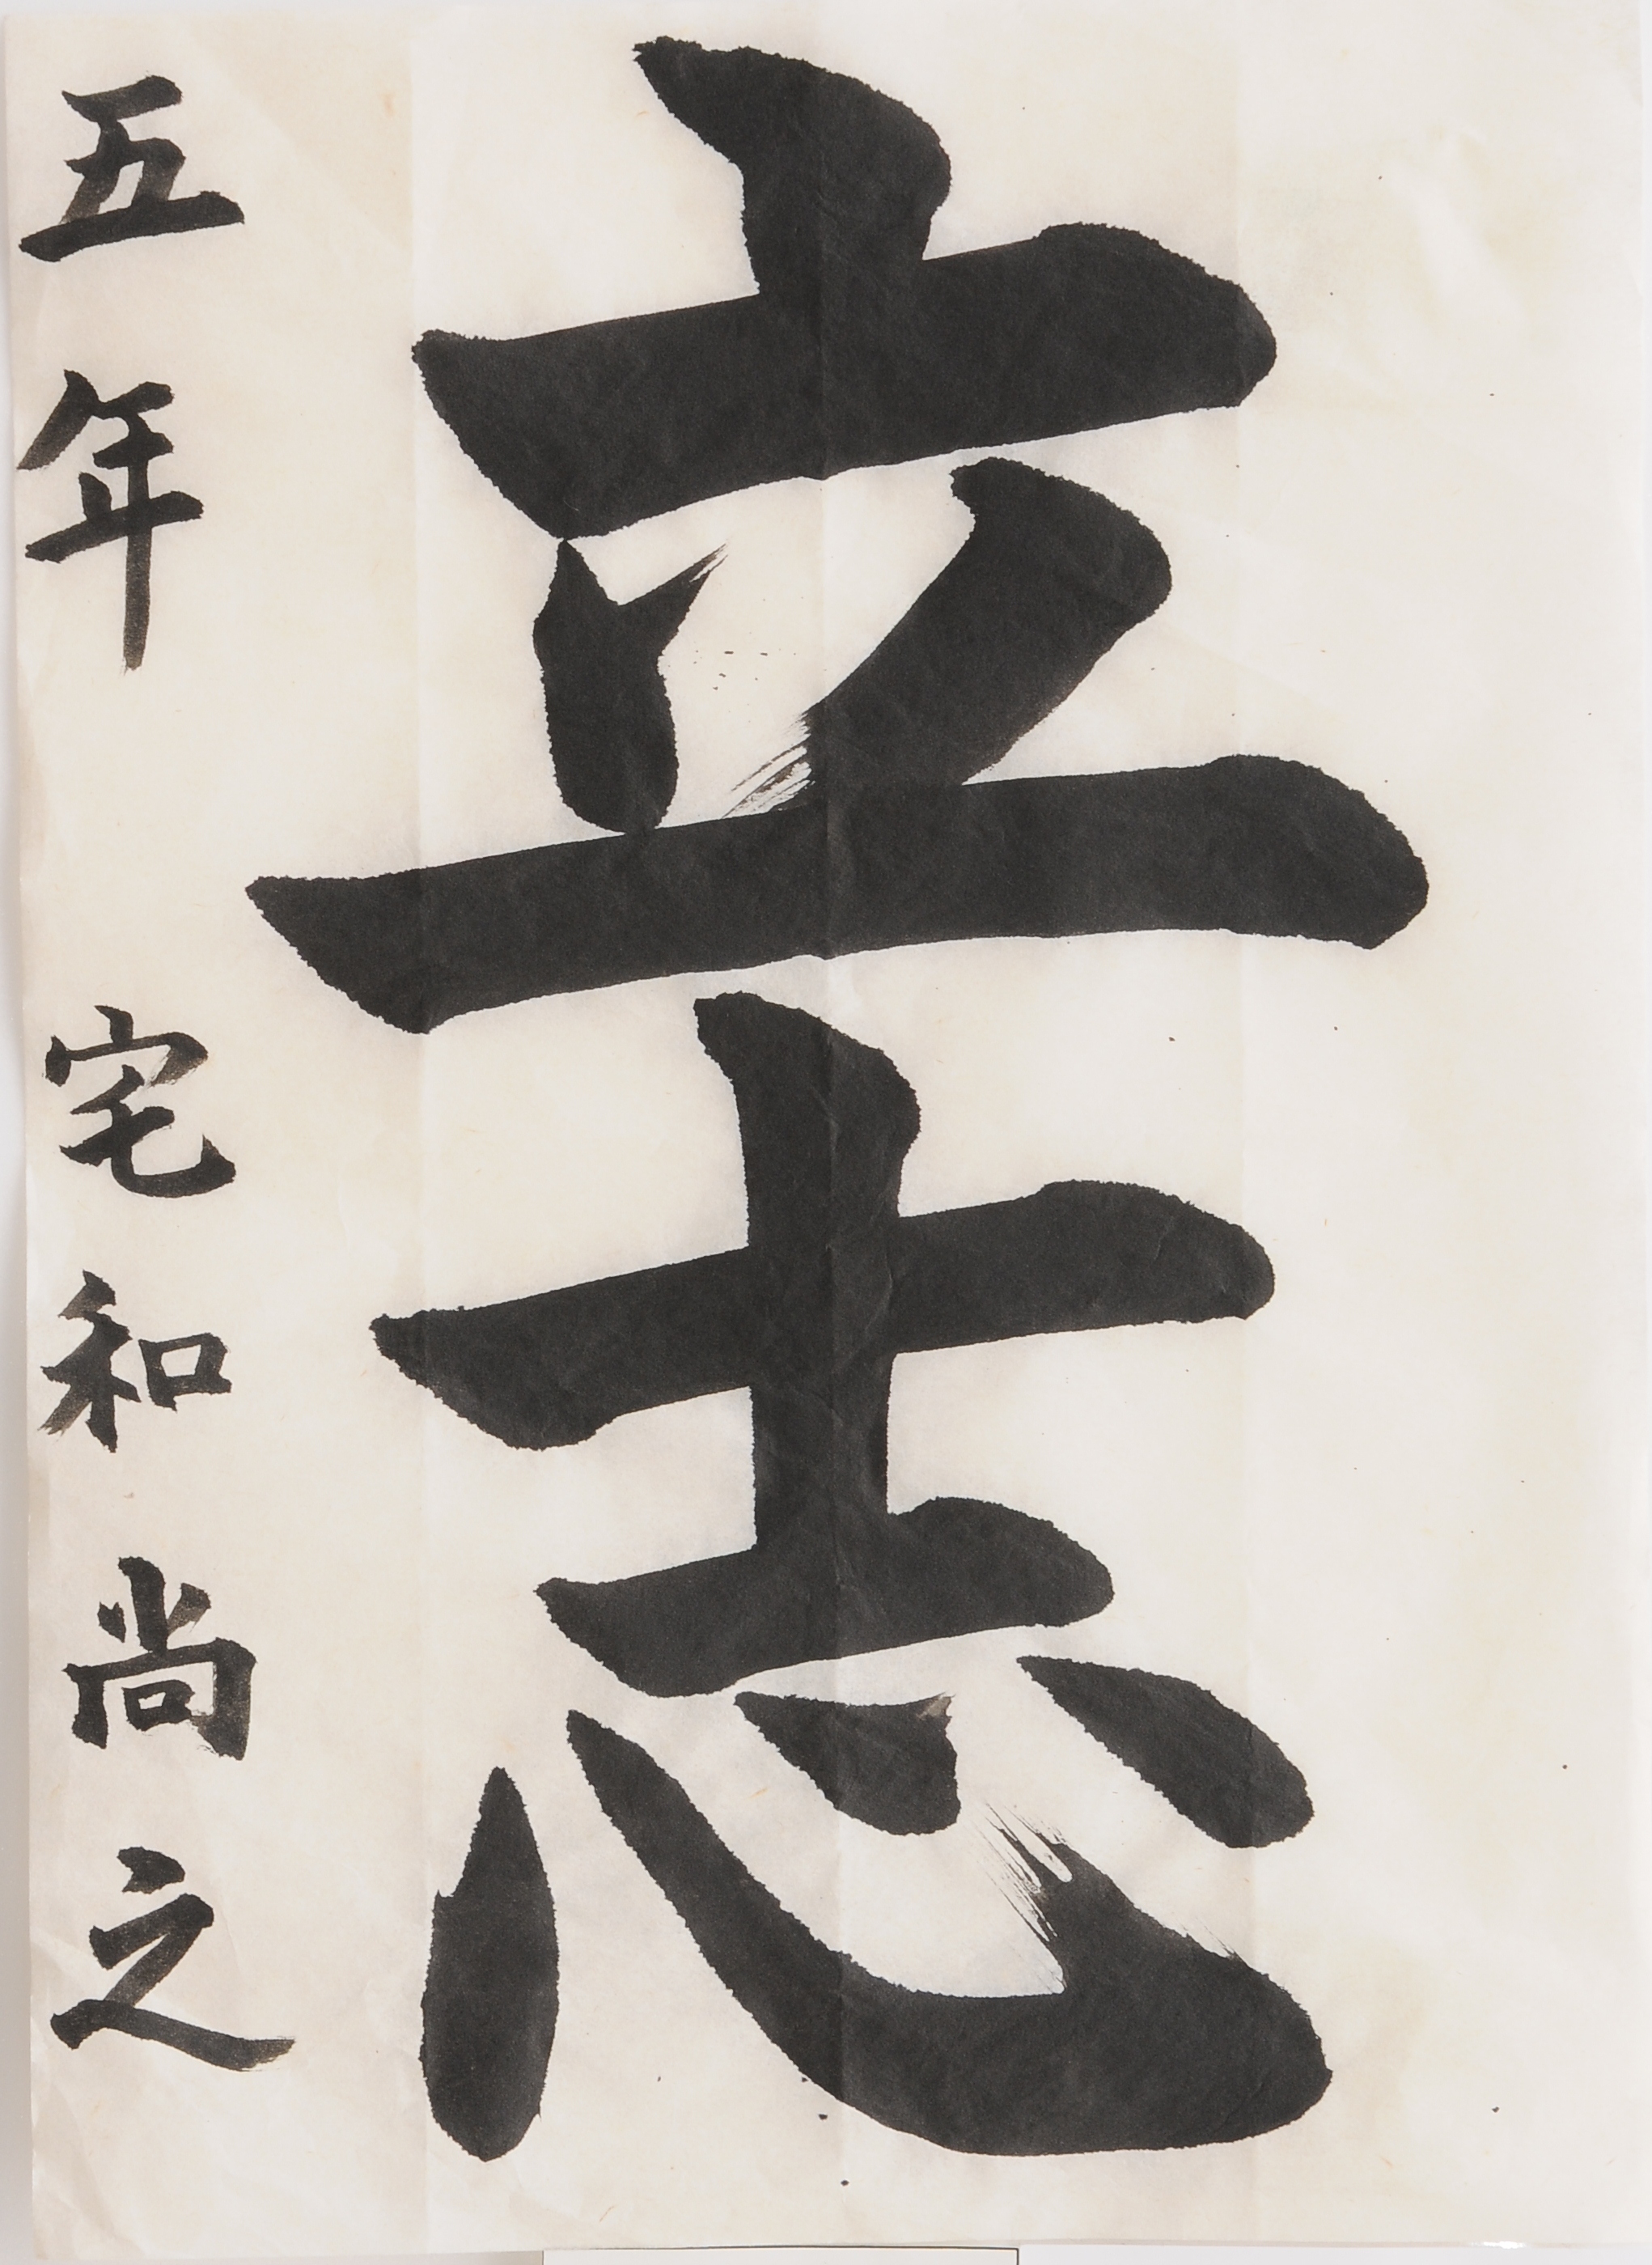 立志
五年 宅和尚之